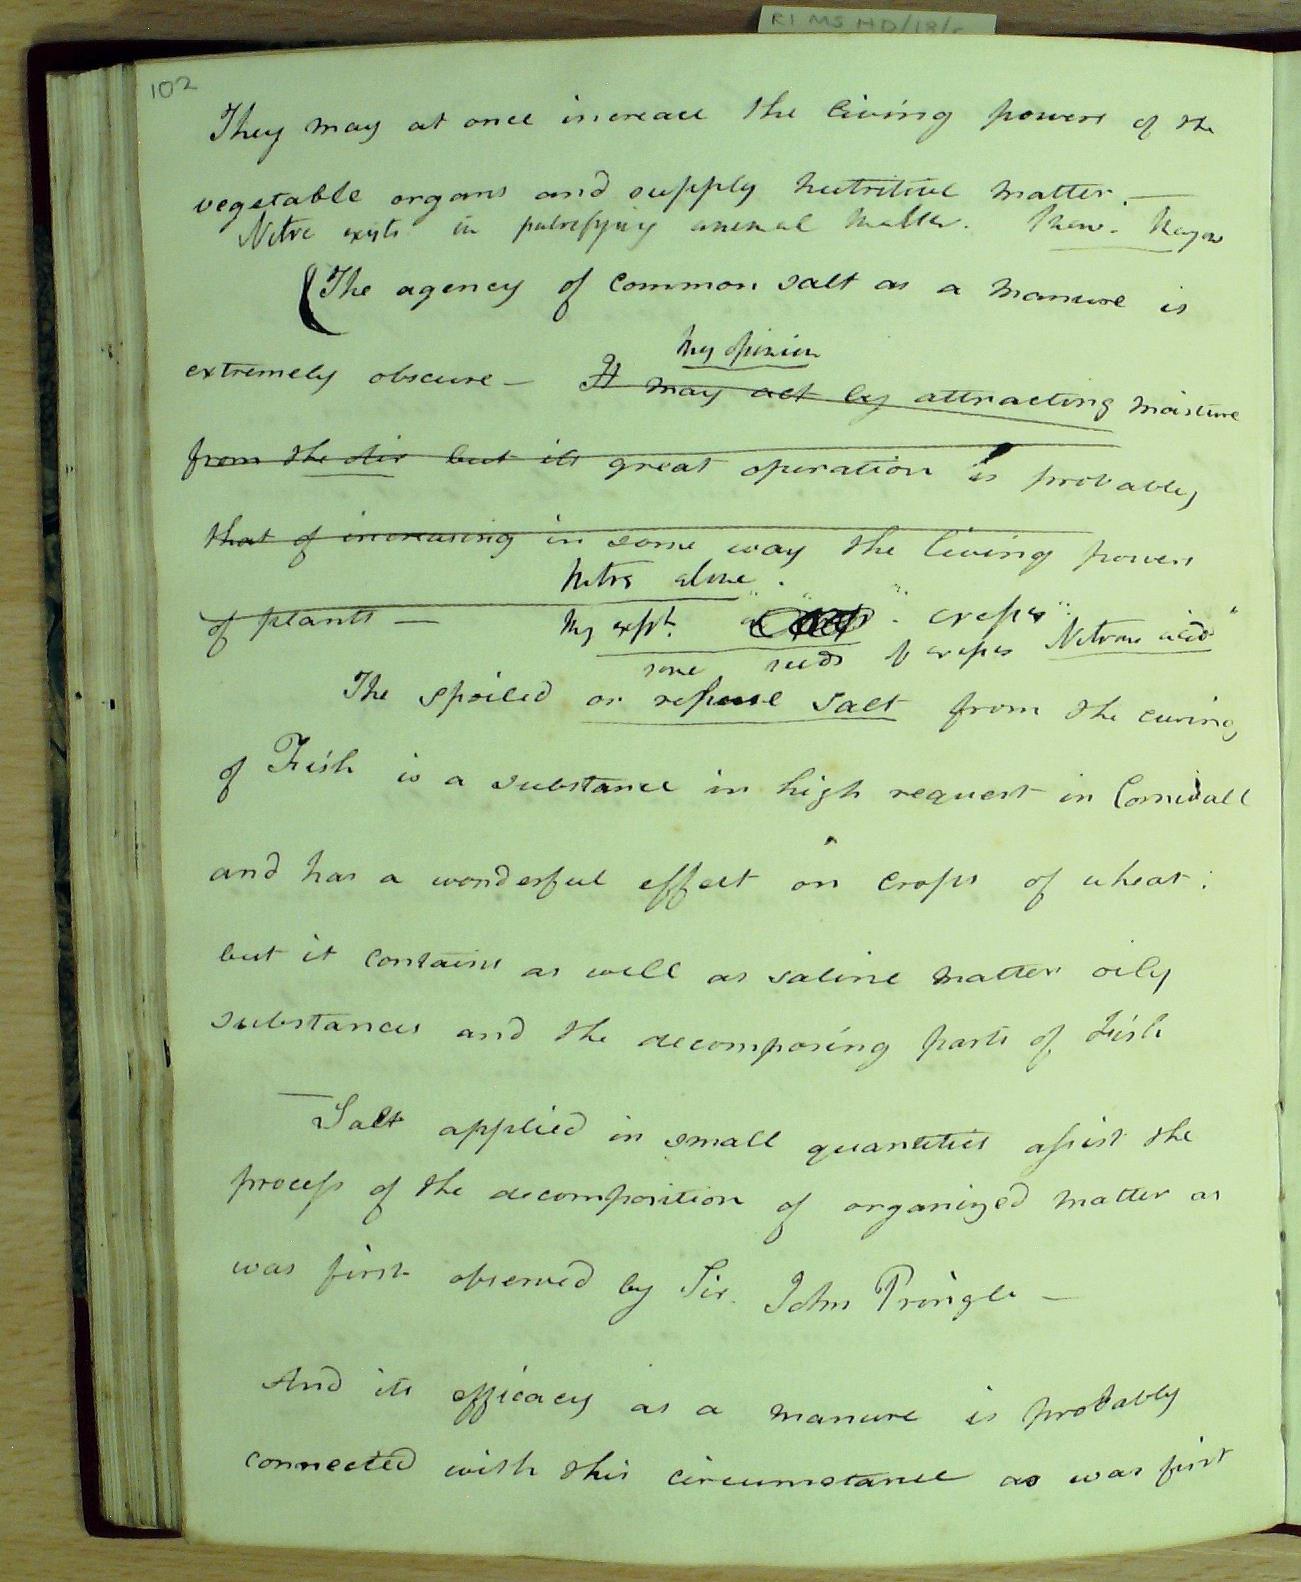 RI MS HD/18/
102
They may at once increase the living powers of the
vegetable organs and supply nutritive matter. —
Nitre exists in putrefying animal matter.
(The agency of common salt as a manure is
My opinion
extremely obscure — It may act by attracting moisture
from the Air but its great operation is probably
that of increasing in some way the living powers
Nitre alone.
of plants — My expt. cresses
some seeds of cresses Nitrous acid
The spoiled or refuse salt from the curing
of Fish is a substance in high request in Cornwall
and has a wonderful effect on crops of wheat:
but it contains as well as saline matter oily
substances and the decomposing parts of Fish
— Salt applied in small quantities assist the
process of the decomposition of organized matter as
was first observed by Sir. John Pringle —
And its efficacy as a manure is probably
connected with this circumstance as was first